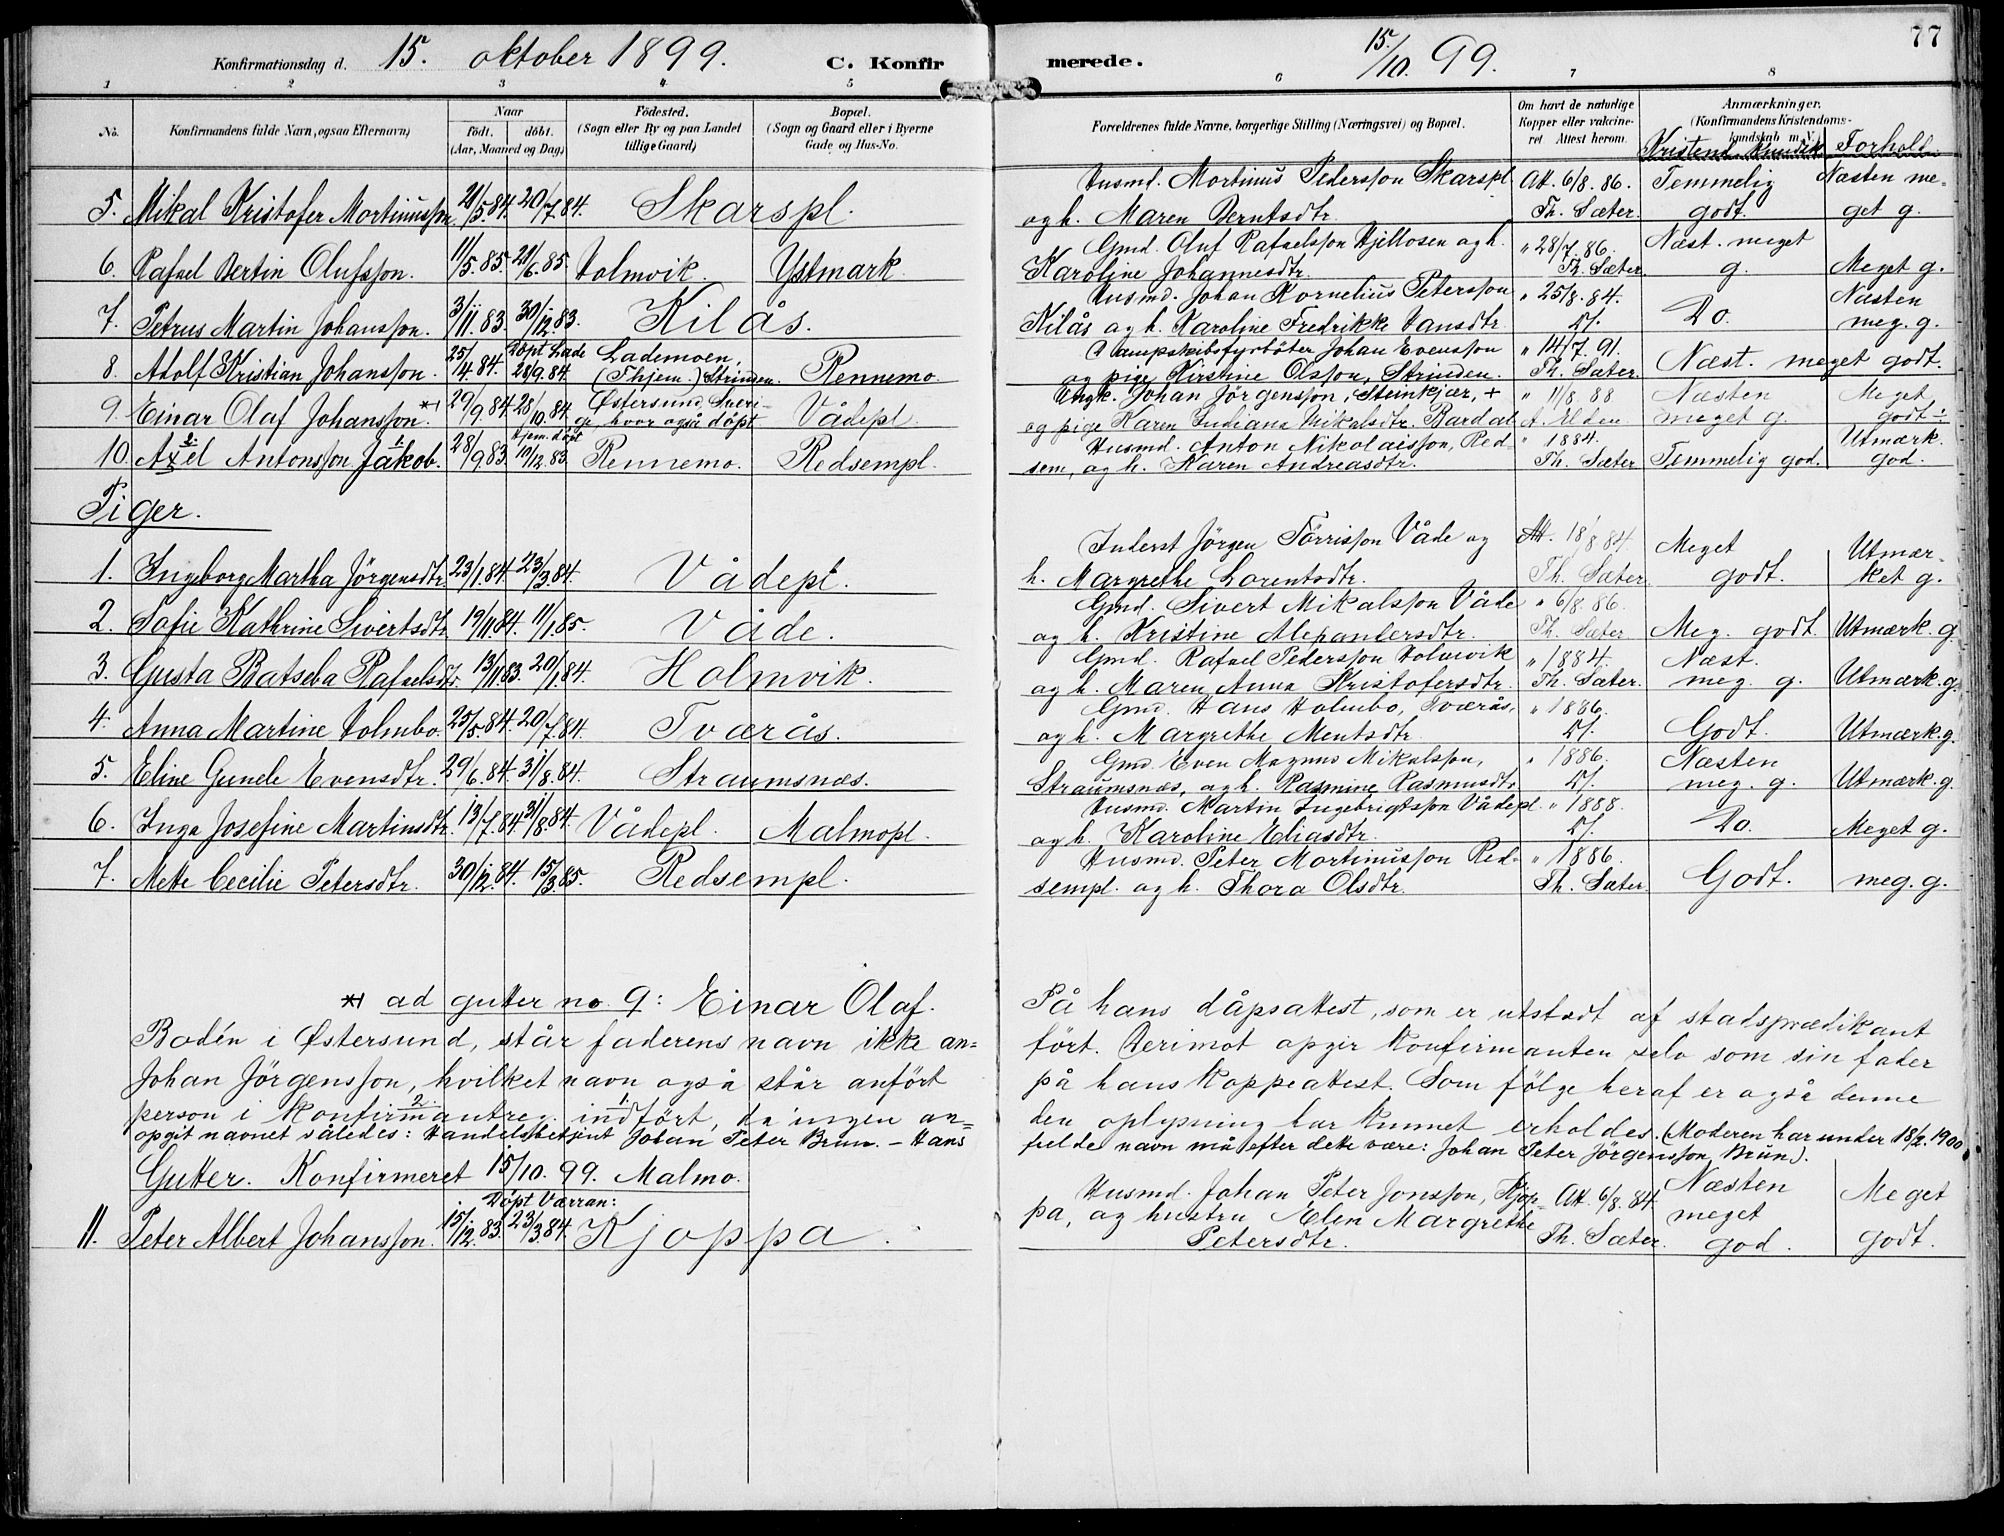 Konfirmationsdag d. 15. oktober 1899. C. Konfirmerede. 15/10. 99. 77
1 2 3 4 5 6 7 8
No. Konfirmandens fulde Navn, ogsaa Efternavn) Naar født. døbt. (Aar, Maaned og Dag) Fødested. (Sogn eller By og paa Landet tillige Gaard) Bopæl. (Sogn og Gaard eller i Byerne Gade og Hus-No. Forældrenes fulde Navne, borgerlige Stilling (Næringsvei) og Bopæl. Om havt de naturlige Kopper eller vakcineret Attest herom. Anmærkninger. (Konfirmandens Kristendomskundskab m. V.)
Kristend. kundsk. Forhold.
5. Mikal Kristofer Mortinusson 21/5.84. 20/7.84. Skarspl. Husmd. Mortinus Pedersson Skarspl og h. Maren Berntsdtr. Att. 6/8. 86. Th. Sæter. Temmelig godt. Næsten meget g.
6. Rafael Bertin Olufsson. 11/5.85. 21/6.85. Holmvik. Ystmark. Gmd. Oluf Rafaelsson Hjellosen og h. Karoline Johannesdtr. " 28/7. 86. Th. Sæter Næst. meget g. Meget g.
7. Petrus Martin Johansson. 3/11.83. 30/12.83. Kilås. Husmd. Johan Kornelius Petersson Kilås og h. Karoline Fredrikke Hansdtr. " 25/8. 84. D/. Do. Næsten meg. g.
8. Adolf Kristian Johansson. 25/4.84. Døpt Lade 28/9.84. Lademoen, (Thjem.) Strinden. Rennemo. Dampskibsfyrbøter Johan Evensson og pige Kirstine Olsson, Strinden. " 14/7. 91. Th. Sæter. Næst. meget godt.
9. Einar Olaf Johansson. *) 29/9.84. 28/10.84. Østersund Sverige hvor også døpt. Vådepl. Ungk. Johan Jörgensson, Steinkjær, + og pige Karen Indiana Mikalsdtr. Bardal " 11/8 88 A. Elden Næsten meget g. Meget godt.
10. Axel Antonsson Jakob. 28/9.83. Hjem. døpt 10/12.83. Rennemo. Redsempl. Husmd. Anton Nikolaisson, Redsem, og h. Karen Andreasdtr. " 1884. Th. Sæter Temmelig god. Utmærk. god.
Piger.
1. Ingeborg Martha Jörgensdtr. 23/1.84. 23/3.84. Vådepl. Inderst Jörgen Törrisson Våde og h. Margrethe Lorentsdtr. Att. 18/8 84. Th. Sæter. Meget godt. Utmærket g.
2. Sofie Kathrine Sivertsdtr. 19/11.84. 11/1.85. Våde. Gmd. Sivert Mikalsson Våde og h. Kristine Alexandersdtr. " 6/8. 86. Th. Sæter Meg. godt. Utmærk. g.
3. Gusta Batseba Rafaelsdtr. 13/11.83. 20/1.84. Holmvik. Gmd. Rafael Pedersson Holmvik og h. Maren Anna Kristofersdtr. " 1884. Th. Sæter. Næst. meg. g. Utmærk. g.
4. Anna Martine Holmbo. 25/5.84. 20/7.84. Tværås. Gmd. Hans Holmbo, Tværås, og h. Margrethe Mentsdtr. " 1886. D/. Godt. Utmærk. g.
5. Eline Gunele Evensdtr. 29/6.84. 31/8.84. Straumsnæs. Gmd. Even Magnus Mikalsson, Straumsnæs, og h. Rasmine Rasmusdtr. " 1886. D/. Næsten meg. g. Utmærk. g.
6. Inga Josefine Martinsdtr. 13/7.84. 31/8.84. Vådepl. Malmopl. Husmd. Martin Ingebrigtsson Vådepl. og h. Karoline Eliasdtr. " 1888. D/. Do. Meget g.
7. Mette Cecilie Petersdtr. 30/12.84. 15/3.85. Redsempl. Husmd. Peter Mortinusson Redsempl. og h. Thora Olsdtr. " 1886. Th. Sæter. Godt. meg. g.
*) ad gutter no. 9: Einar Olaf. På hans dåpsattest, som er utstedt af stadsprædikant
Bodén i Østersund, står faderens navn ikke anført. Derimot opgir konfirmanten selv som sin fader
Johan Jörgensson, hvilket navn også står anført på hans koppeattest. Som fölge heraf er også denne
person i konfirmantreg. indført, da ingen anden oplysning har kunnet erholdes. (Moderen har under 18/2. 1900
opgit navnet således: Handelsbetjent Johan Peter Brun. – Hans fulde navn må efter dette være: Johan Peter Jörgensson Brün).
Gutter. Konfirmeret 15/10. 99. Malmo.
11. Peter Albert Johansson. 15/12.83. Døpt Værran: 23/3.84. Kjoppa. Husmd. Johan Peter Jonsson, Kjoppa, og hustru Elen Margrethe Petersdtr. Att. 6/8. 84. Th. Sæter. Næsten meget god. Meget godt.